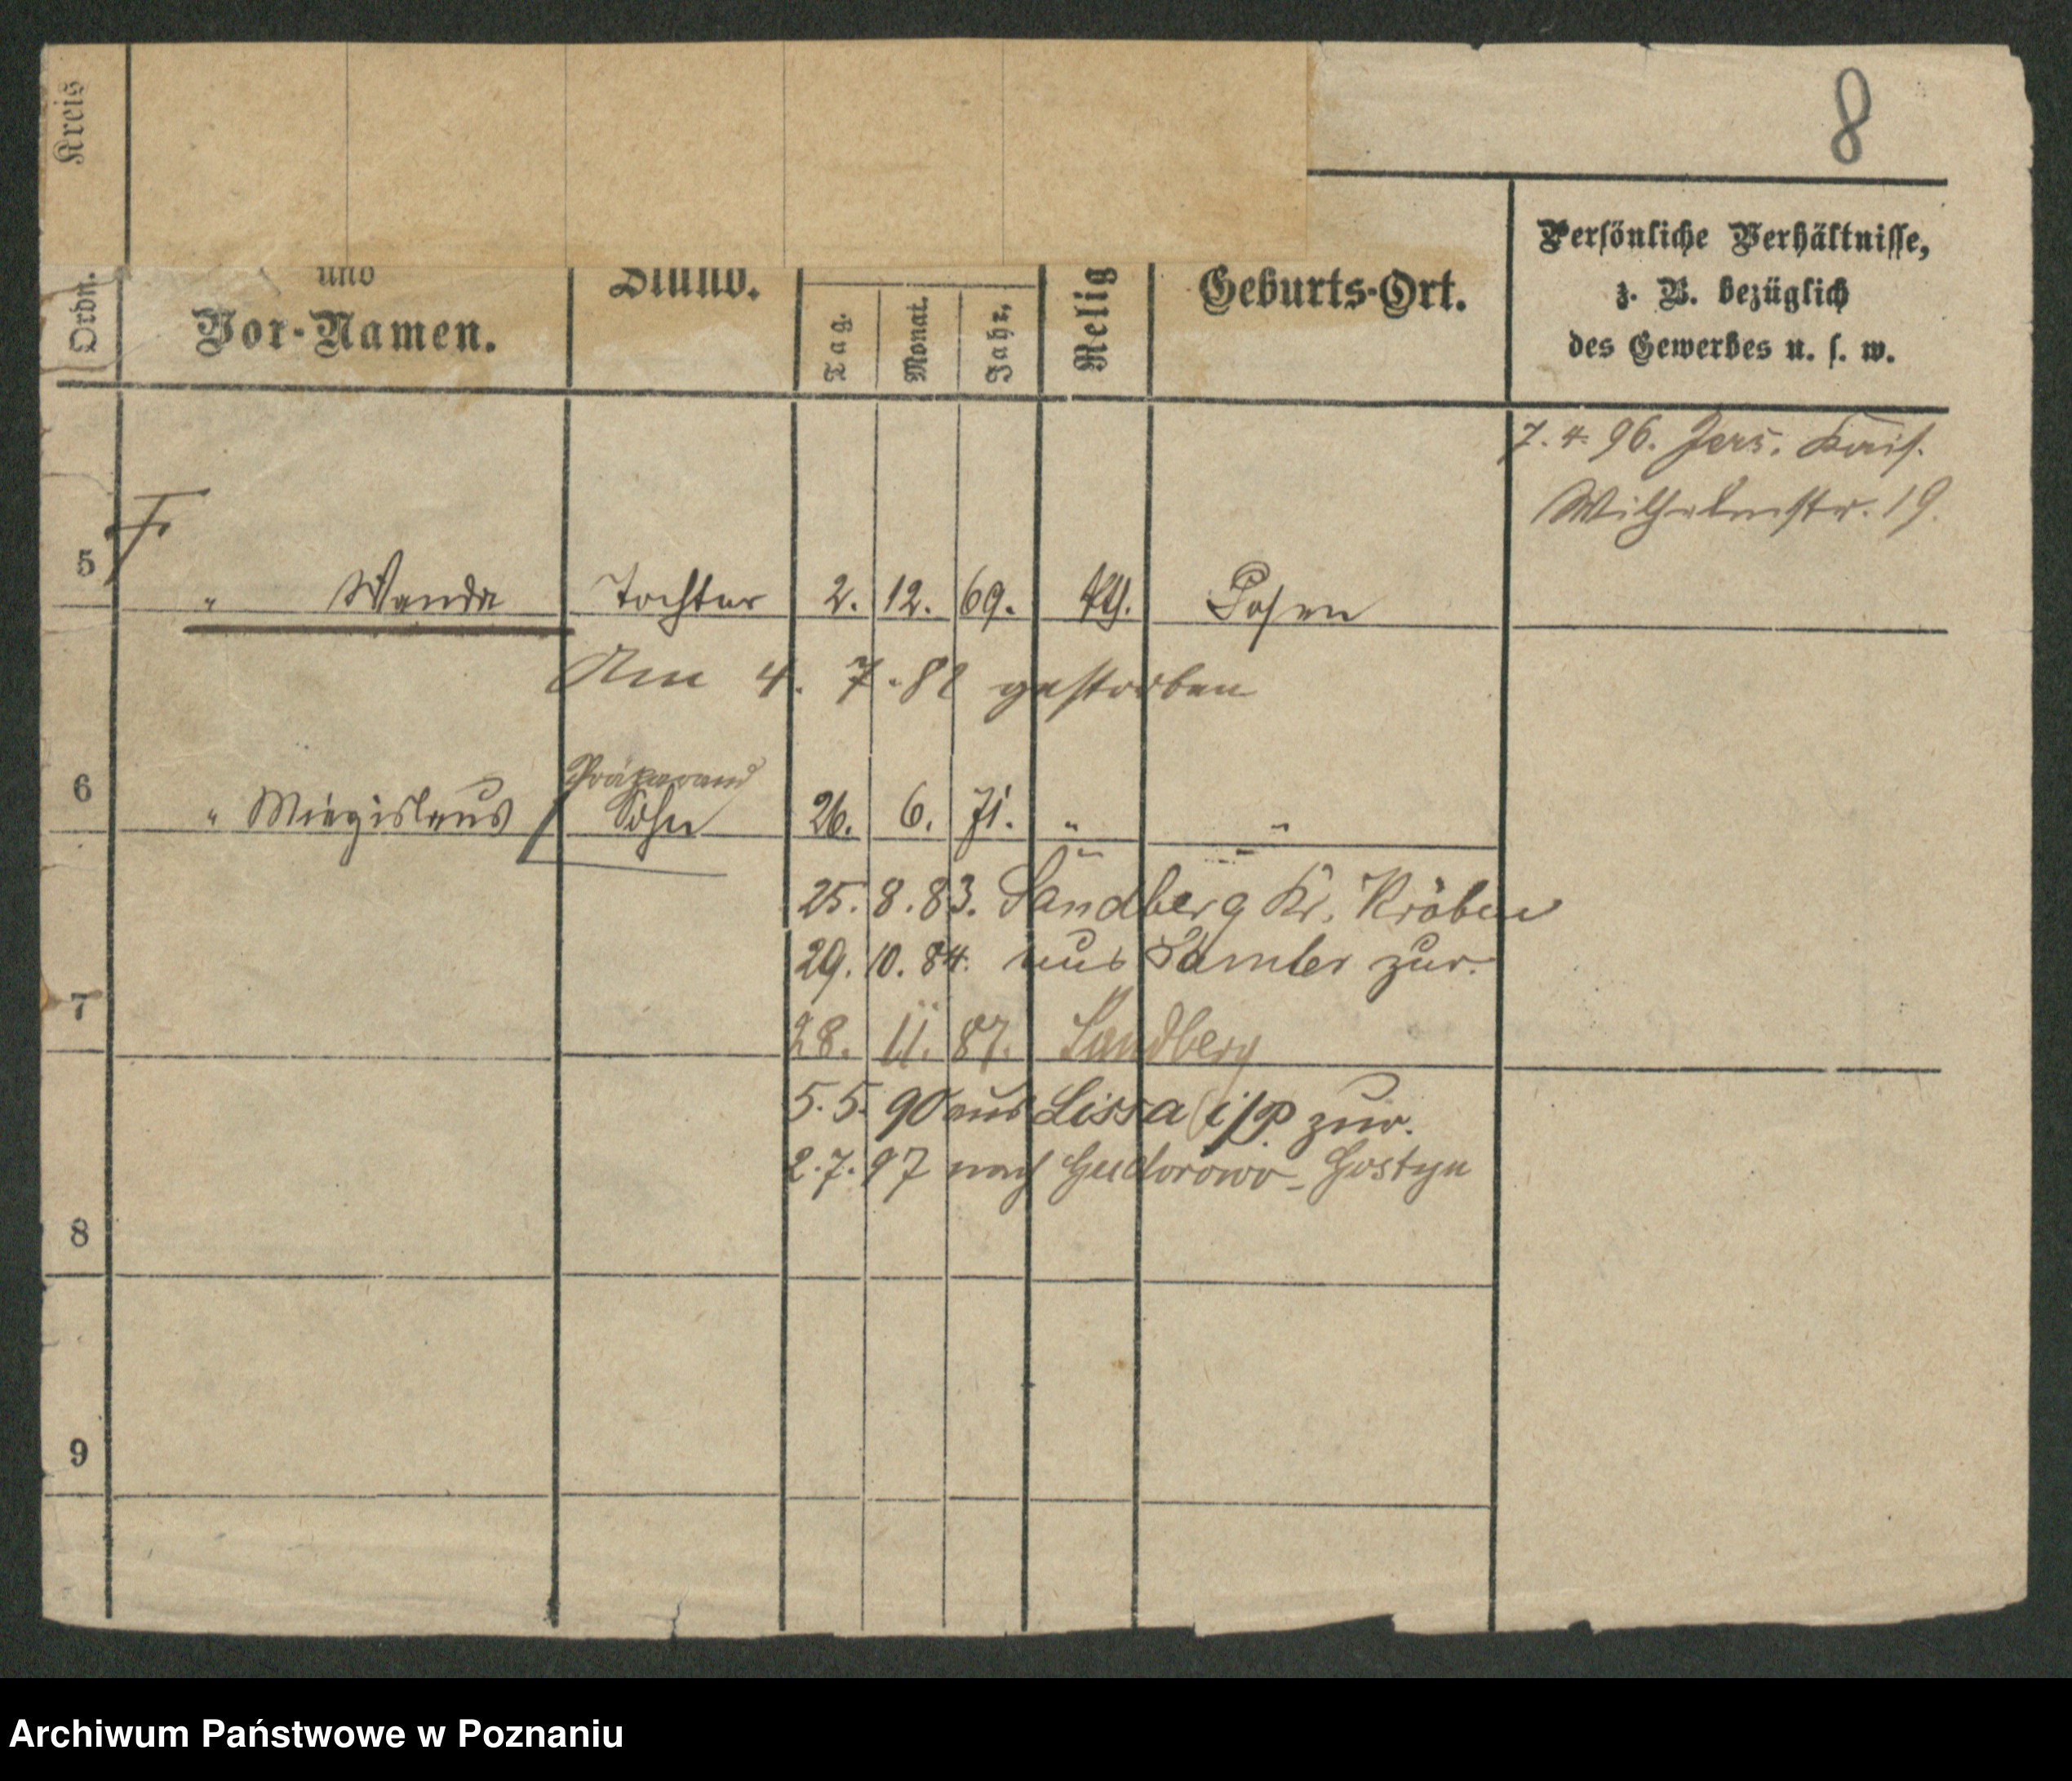 Kreis
8
und
Stand.
Persönliche Verhältnisse,
z. B. bezüglich
des Gewerbes u. s. w.
Ordn.
Vor-Namen.
Tag.
Monat.
Jahr,
Relig
Geburts-Ort.
7. 4. 96. Jers. Kais.
Wilhelmstr. 19.
5
" Wanda Tochter 2. 12. 69. kth. Posen
Am 4. 7. 82 gestorben
Präparand
6
" Miezislaus Sohn 26. 6. 71. " "
25. 8. 83. Sandberg Kr. Kröben
29. 10. 84. aus Samter zur.
7
28. 11. 87. Sandberg
5. 5. 90 aus Lissa i/P. zur.
2. 7. 97 nach Gostyn
8
9
Archiwum Państwowe w Poznaniu